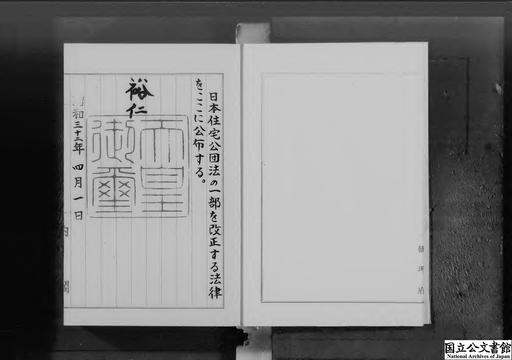 日本住宅公団法の一部を改正する法律
をここに公布する。
裕仁
天皇
御璽
昭和三十二年四月一日
内閣
国立公文書館
National Archives of Japan